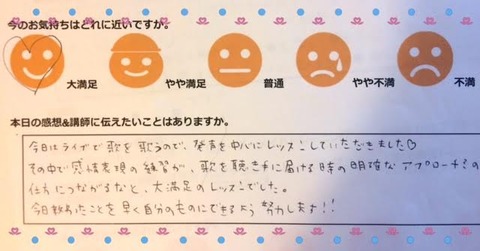 今のお気持ちはどれに近いですか。
大満足 やや満足 普通 やや不満 不満
本日の感想&講師に伝えたいことはありますか。
今日はライブで歌を歌うので、発声を中心にレッスンしていただきました♡
その中で感情表現の練習が、歌を聴き手に届ける時の明確なアプローチの
仕方につながるなと、大満足のレッスンでした。
今日教わったことを早く自分のものにできるよう努力します!!